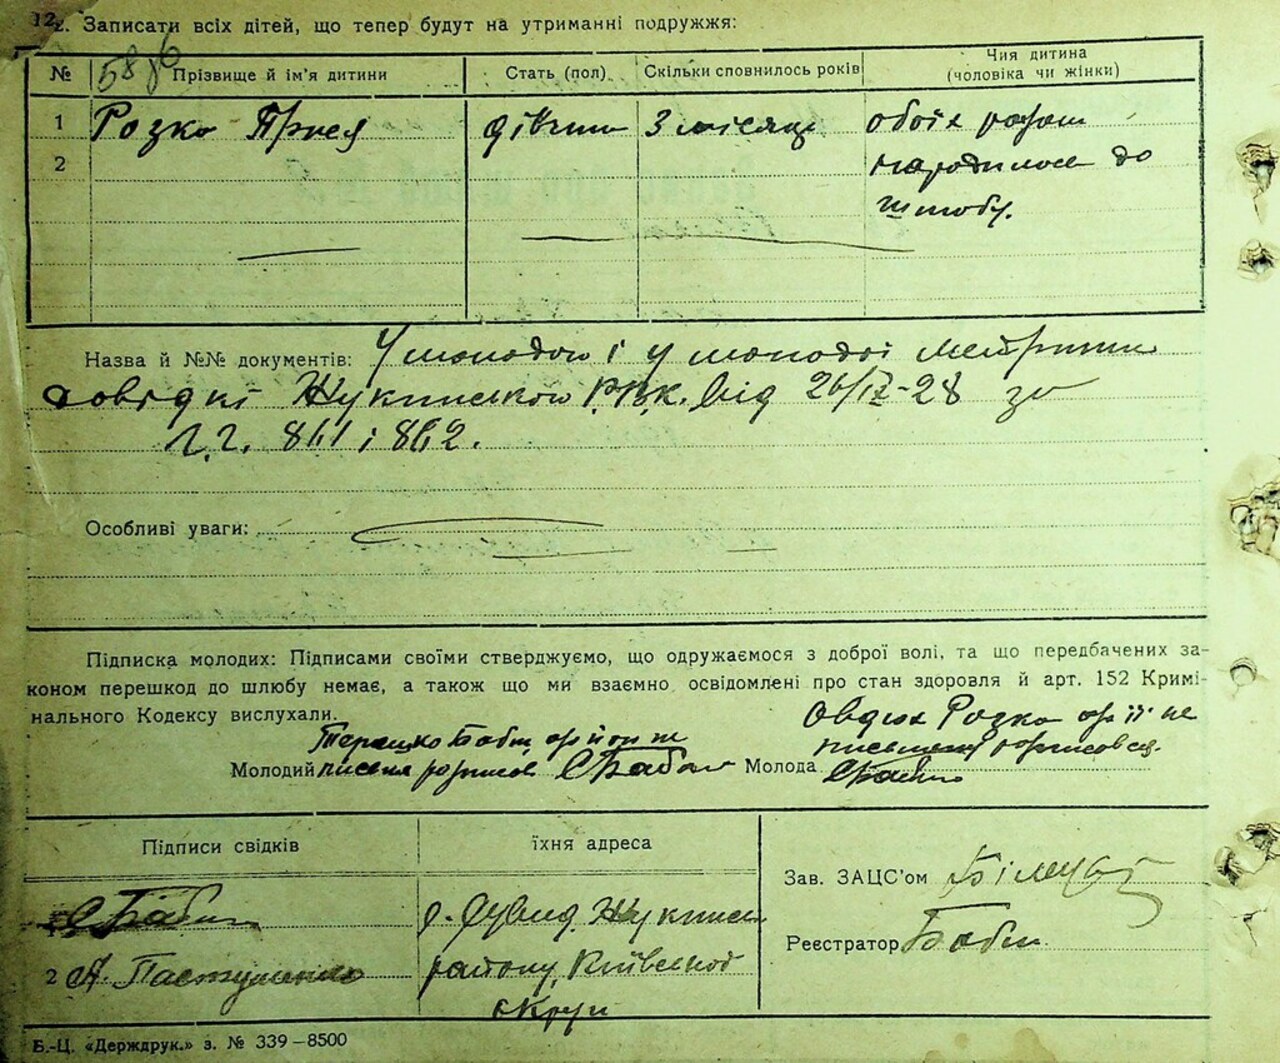 12. Записати всіх дітей, що тепер будут на утриманні подружжя:
№ Прізвище й ім'я дитини Стать (пол) Скільки сповнилось років Чия дитина (чоловіка чи жінки)
1 Розко Прися дівчин 3 місяці обоїх
2 народилося до
шлюбу.
Назва й №№ документів: У молодого і у молодої метрични
довідки Жукинського Р.В.К. від 26/IX-28 за
ч.ч. 861 і 862.
Особливі уваги:
Підписка молодих: Підписами своїми стверджуємо, що одружаємося з доброї волі, та що передбачених за-
коном перешкод до шлюбу немає, а також що ми взаємно освідомлені про стан здоровля й арт. 152 Кримі-
нального Кодексу вислухали.
Розко не
Молодий Молода
Підписи свідків їхня адреса
Зав. ЗАЦС'ом
с. Жукинськ
Реєстратор Бабич
2 А. Пастушенко району, Київської
округи
Б.-Ц. «Держдрук.» з. № 339–8500